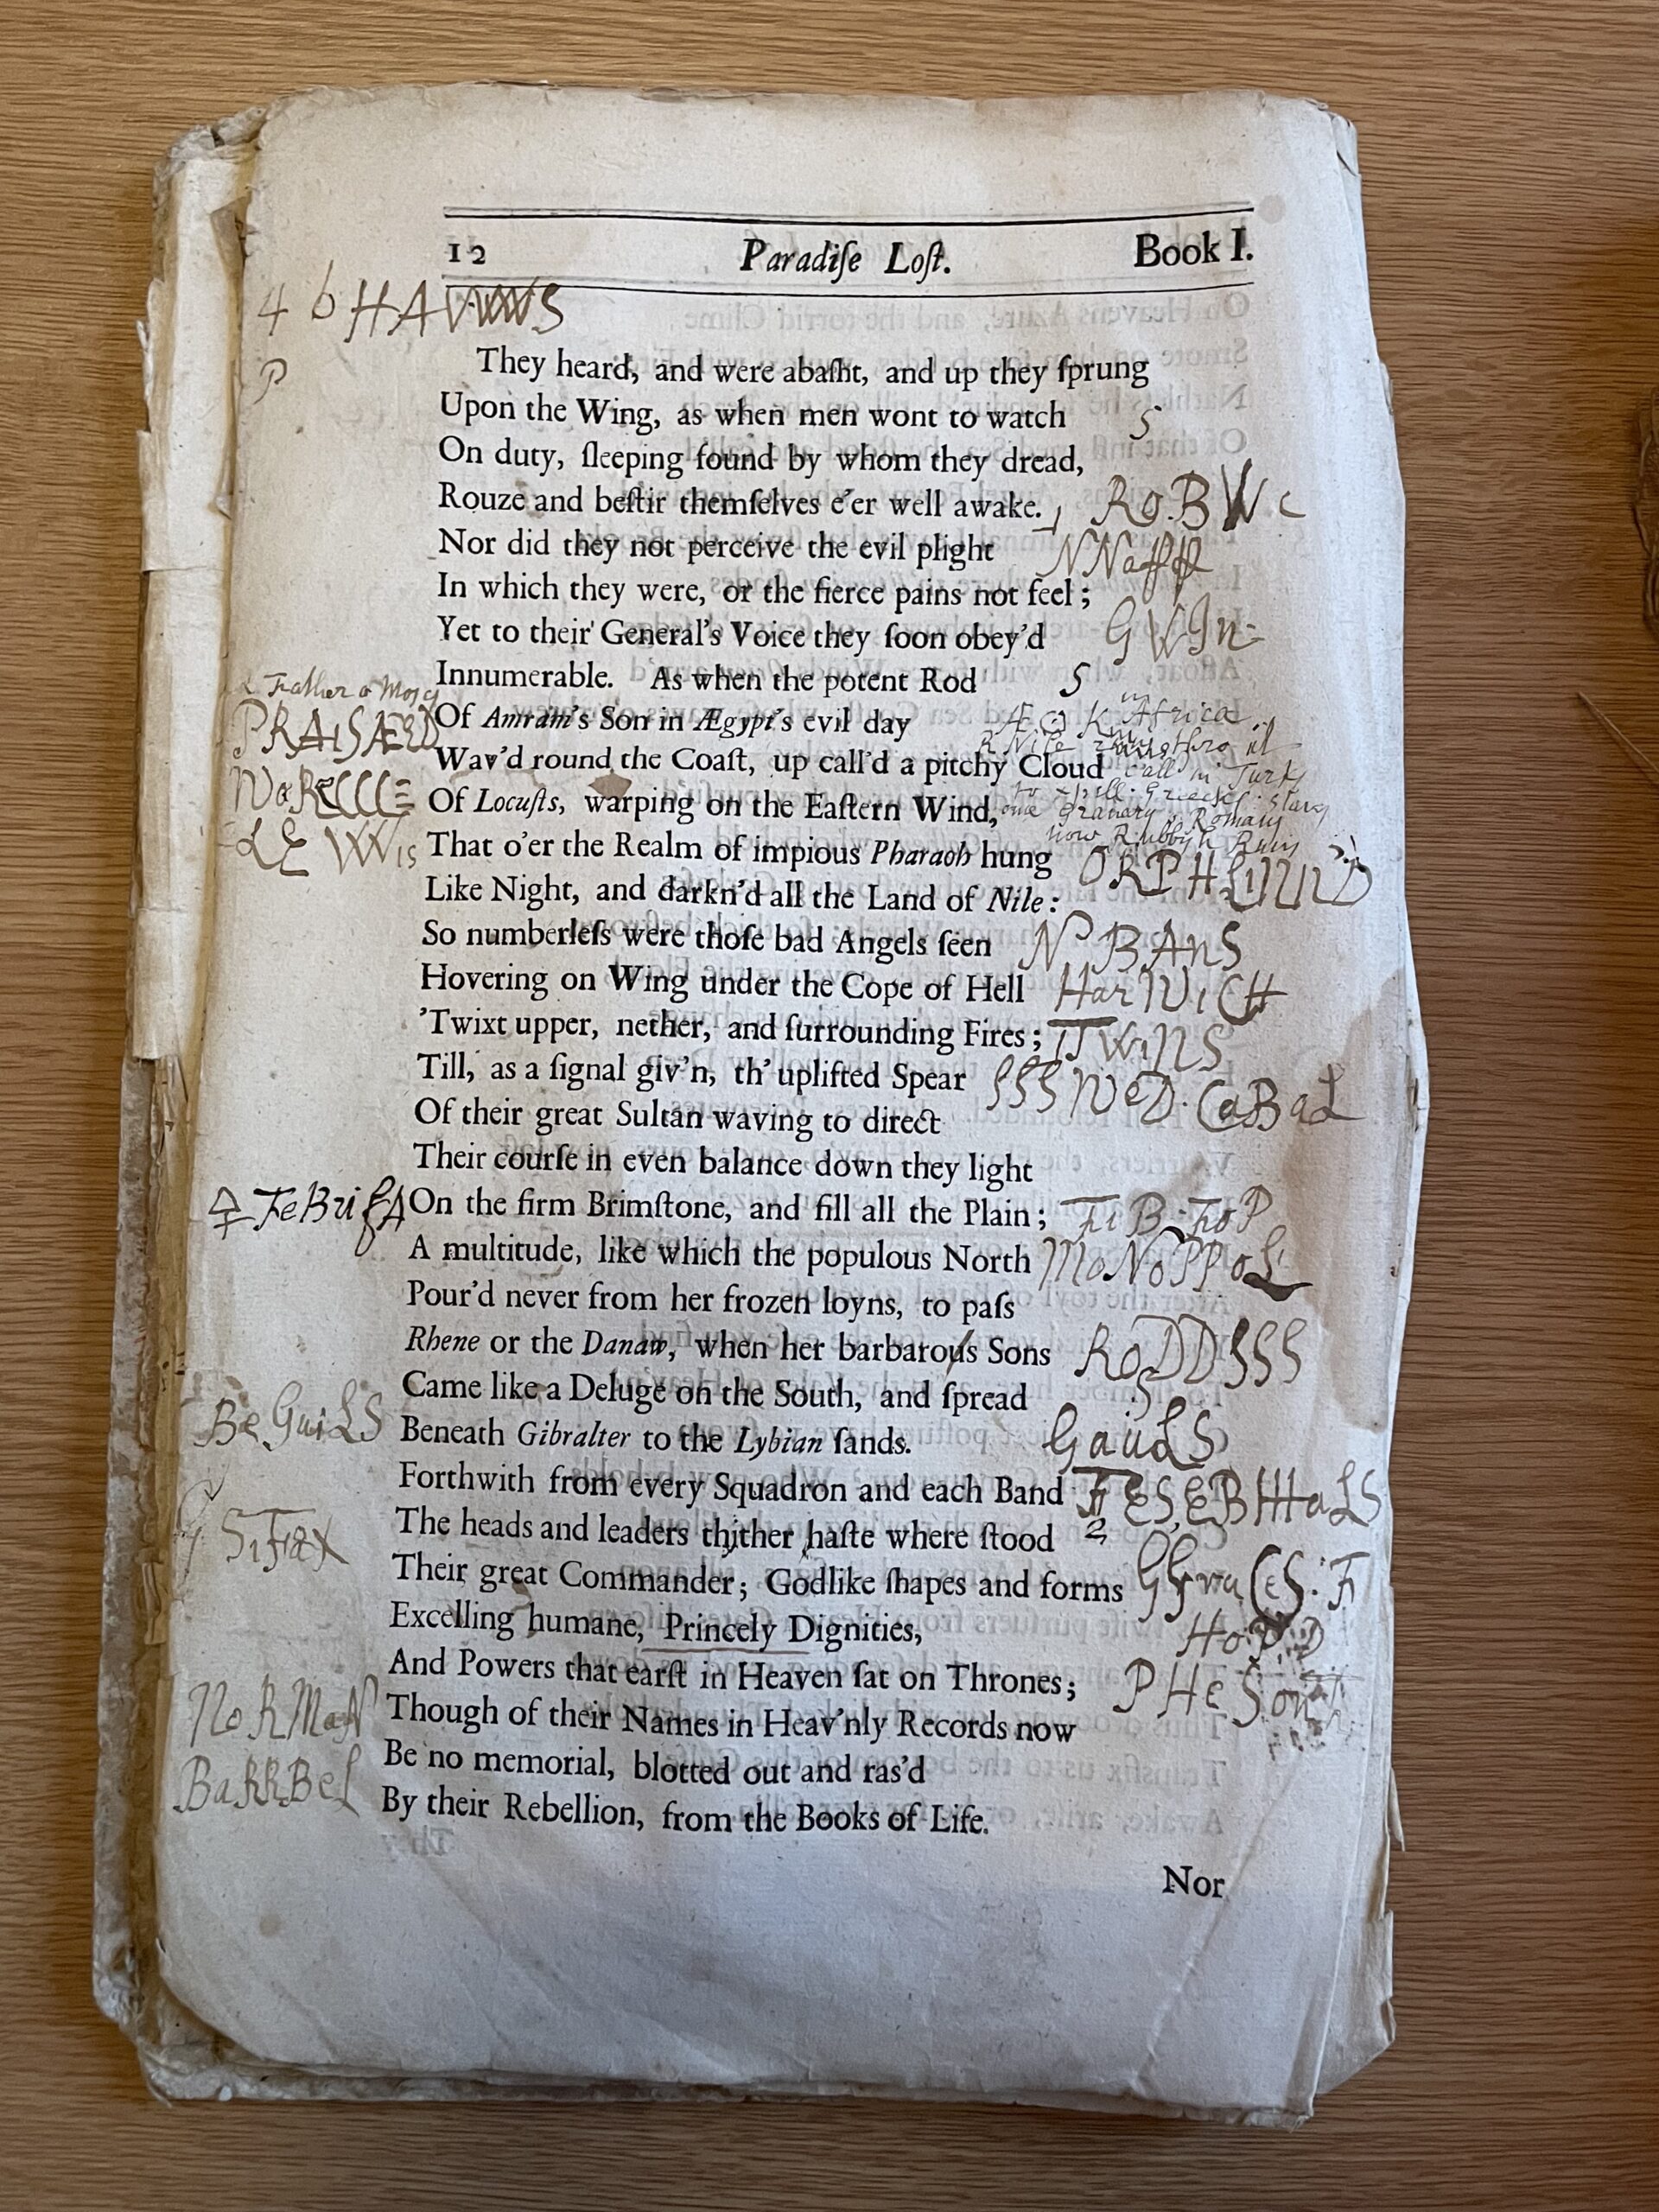 12 Paradiſe Loſt. Book I.
4 6 HAWWS
P
They heard, and were abaſht, and up they ſprung
Upon the Wing, as when men wont to watch S
On duty, ſleeping found by whom they dread,
Rouze and beſtir themſelves e'er well awake. RoBW
Nor did they not perceive the evil plight
In which they were, or the fierce pains not feel;
Yet to their General's Voice they ſoon obey'd GWIn
Innumerable. As when the potent Rod S
Father o Moses
Of Amram's Son in Ægypt's evil day in Africa
Wav'd round the Coaſt, up call'd a pitchy Cloud
Of Locuſts, warping on the Eaſtern Wind,
LEWWis That o'er the Realm of impious Pharaoh hung
Like Night, and darkn'd all the Land of Nile:
So numberleſs were thoſe bad Angels ſeen NP BAnS
Hovering on Wing under the Cope of Hell HarWiCH
'Twixt upper, nether, and ſurrounding Fires; TWiNS
Till, as a ſignal giv'n, th' uplifted Spear SSSWeD. CaBaL
Of their great Sultan waving to direct
Their courſe in even balance down they light
On the firm Brimſtone, and fill all the Plain; FiB-FoP
A multitude, like which the populous North MoNoPPoL
Pour'd never from her frozen loyns, to paſs
Rhene or the Danaw, when her barbarous Sons RoDDSSS
Came like a Deluge on the South, and ſpread
BeGuiLS Beneath Gibralter to the Lybian ſands. GauLS
Forthwith from every Squadron and each Band
SiFax The heads and leaders thither haſte where ſtood 2
Their great Commander; Godlike ſhapes and forms
Excelling humane, Princely Dignities,
And Powers that earſt in Heaven ſat on Thrones;
NoRMaN Though of their Names in Heav'nly Records now
Be no memorial, blotted out and ras'd
BaRRBeL By their Rebellion, from the Books of Life.
Nor